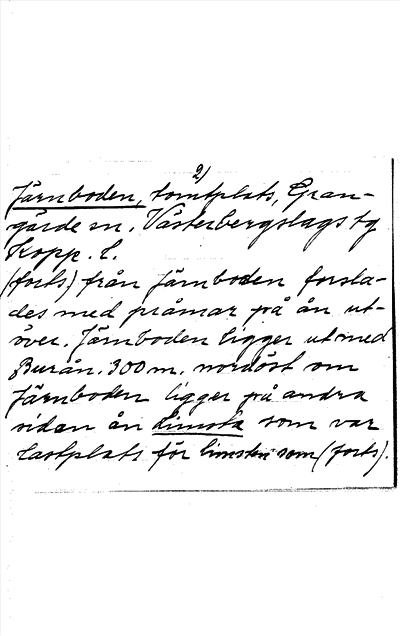 2)
Järnboden, tomtplats, Gran-
gärde sn. Västerbergslags tg
Kopp. l.
(forts) från Järnboden forsla-
des med pråmar på ån ut-
över. Järnboden ligger utmed
Burån. 300 m. nordöst om
Järnboden ligger på andra
sidan ån Limsta som var
lastplats för limsten som (forts).